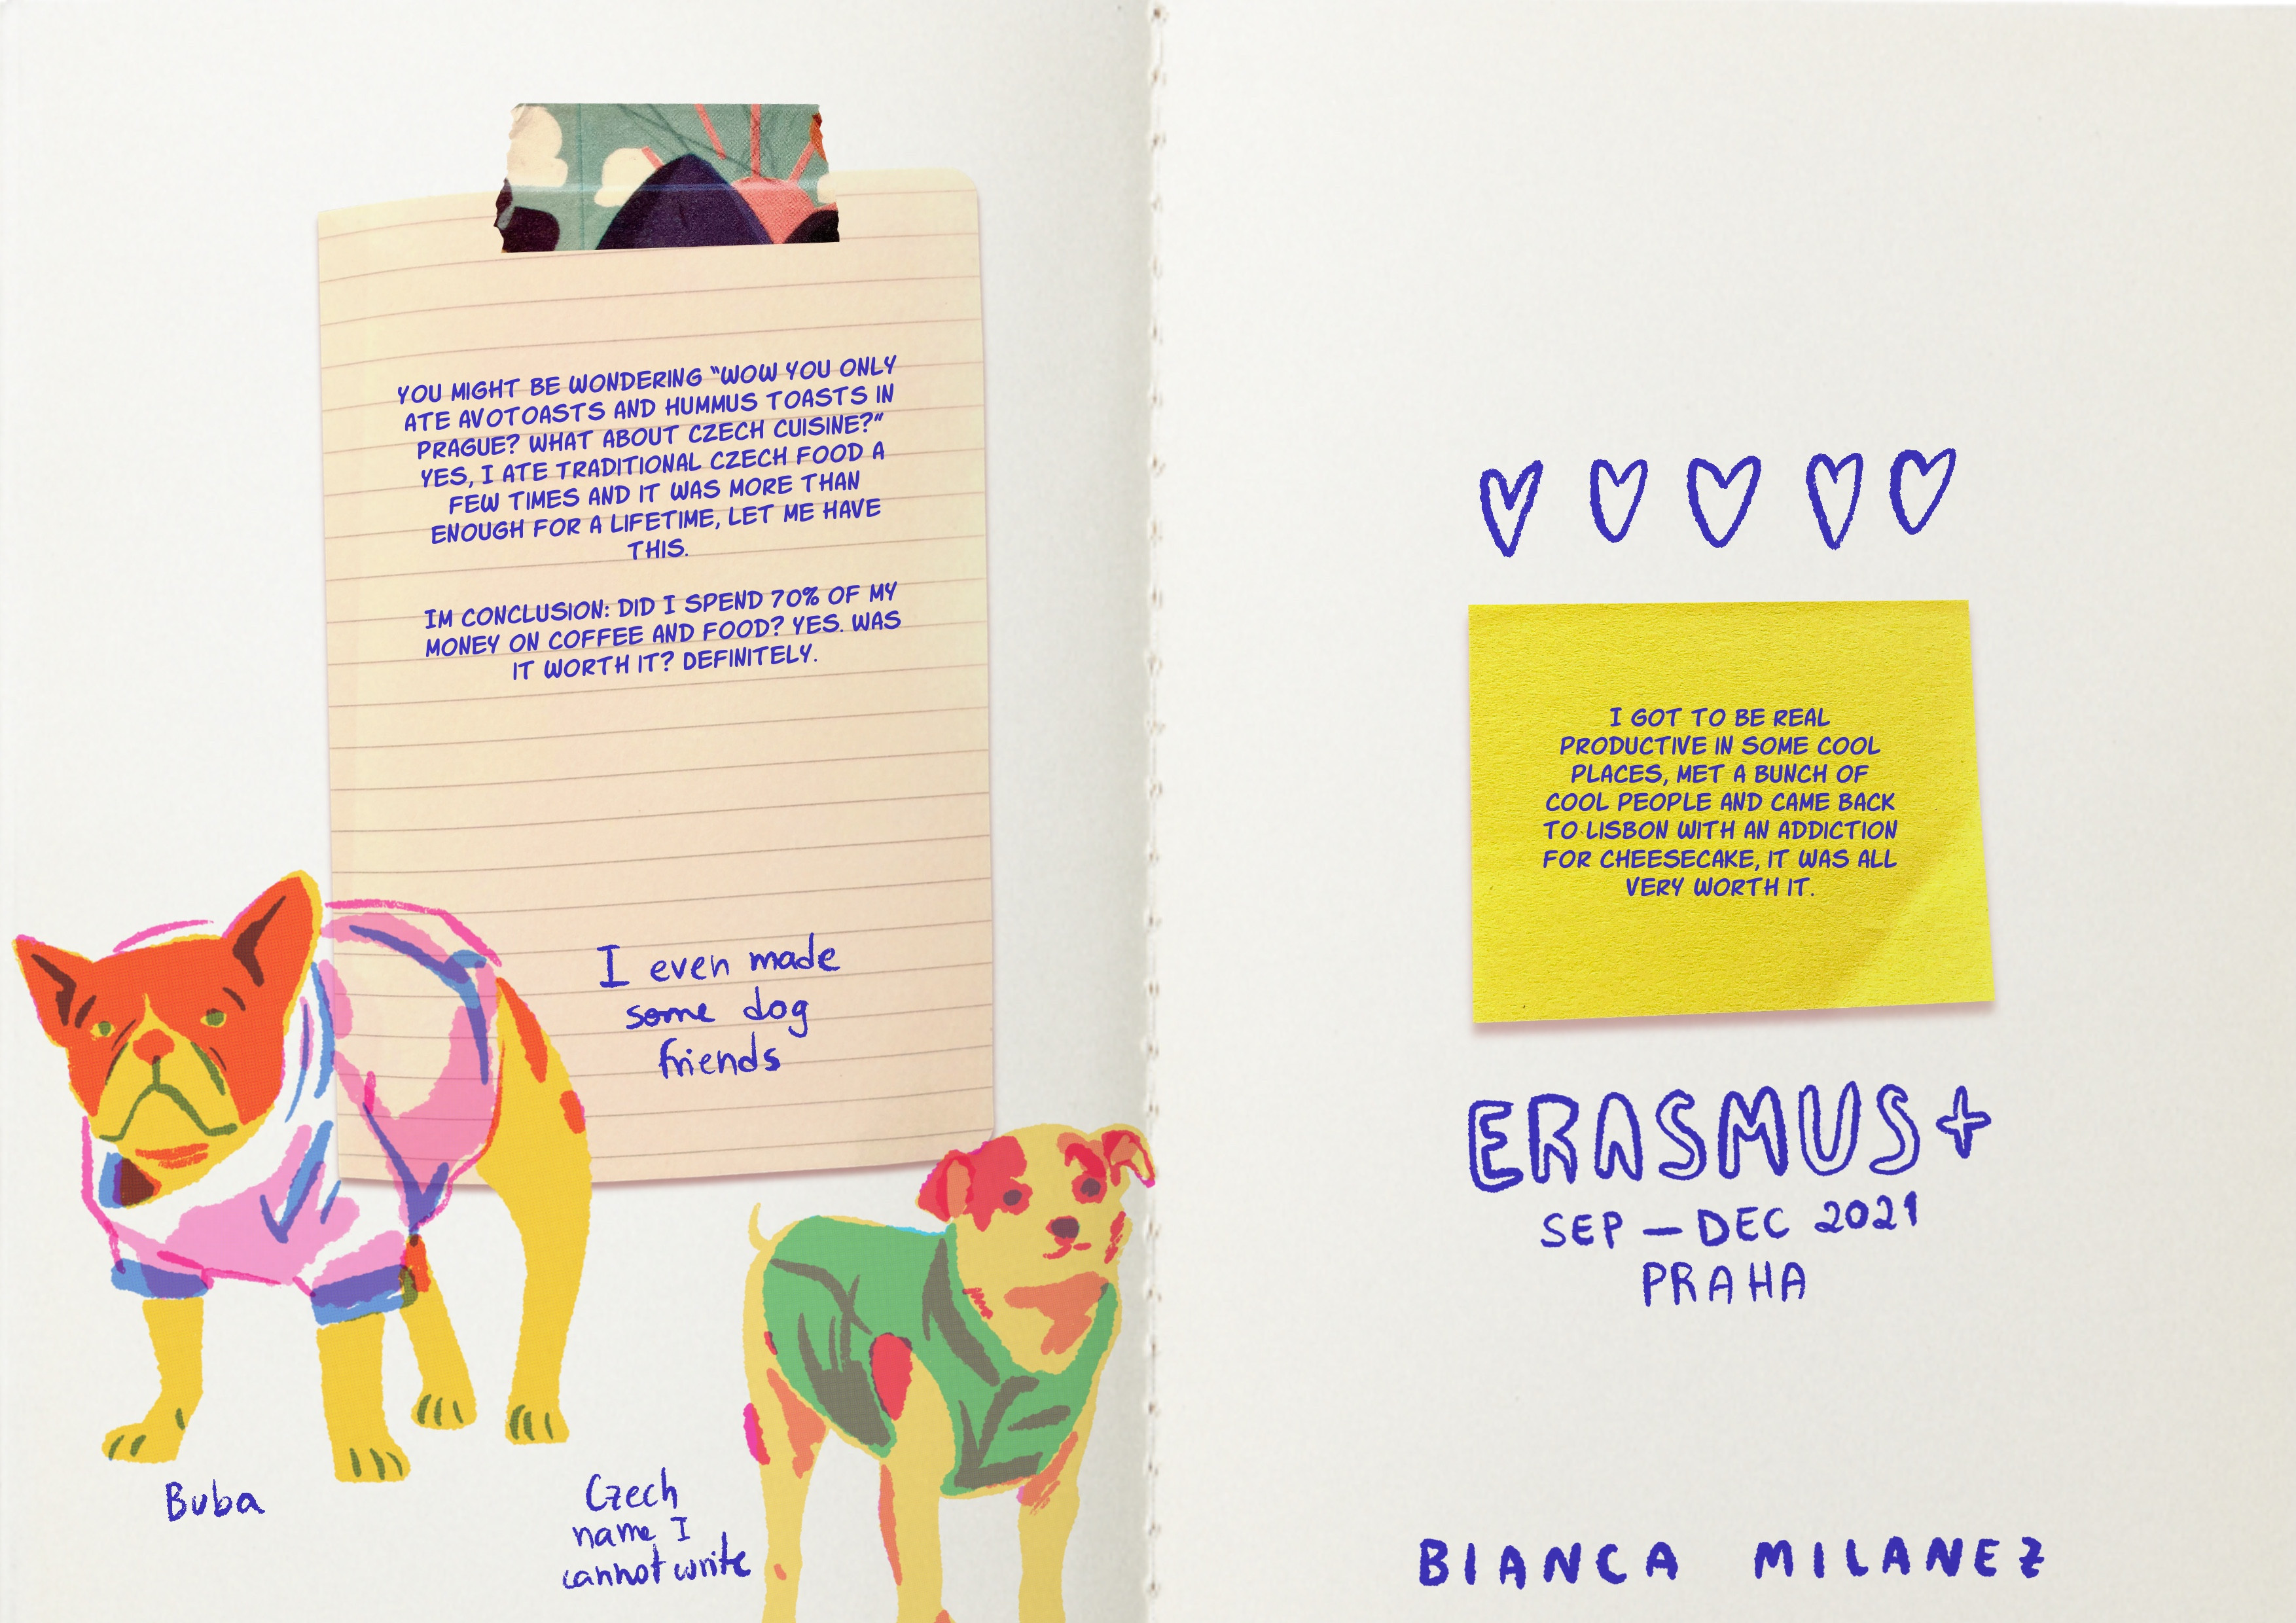 YOU MIGHT BE WONDERING "WOW YOU ONLY
ATE AVOTOASTS AND HUMMUS TOASTS IN
PRAGUE? WHAT ABOUT CZECH CUISINE?"
YES, I ATE TRADITIONAL CZECH FOOD A
FEW TIMES AND IT WAS MORE THAN
ENOUGH FOR A LIFETIME, LET ME HAVE
THIS.
IM CONCLUSION: DID I SPEND 70% OF MY
MONEY ON COFFEE AND FOOD? YES. WAS
IT WORTH IT? DEFINITELY.
I even made
some dog
friends
Buba
Czech
name I
cannot write
I GOT TO BE REAL
PRODUCTIVE IN SOME COOL
PLACES, MET A BUNCH OF
COOL PEOPLE AND CAME BACK
TO LISBON WITH AN ADDICTION
FOR CHEESECAKE, IT WAS ALL
VERY WORTH IT.
ERASMUS+
SEP — DEC 2021
PRAHA
BIANCA MILANEZ